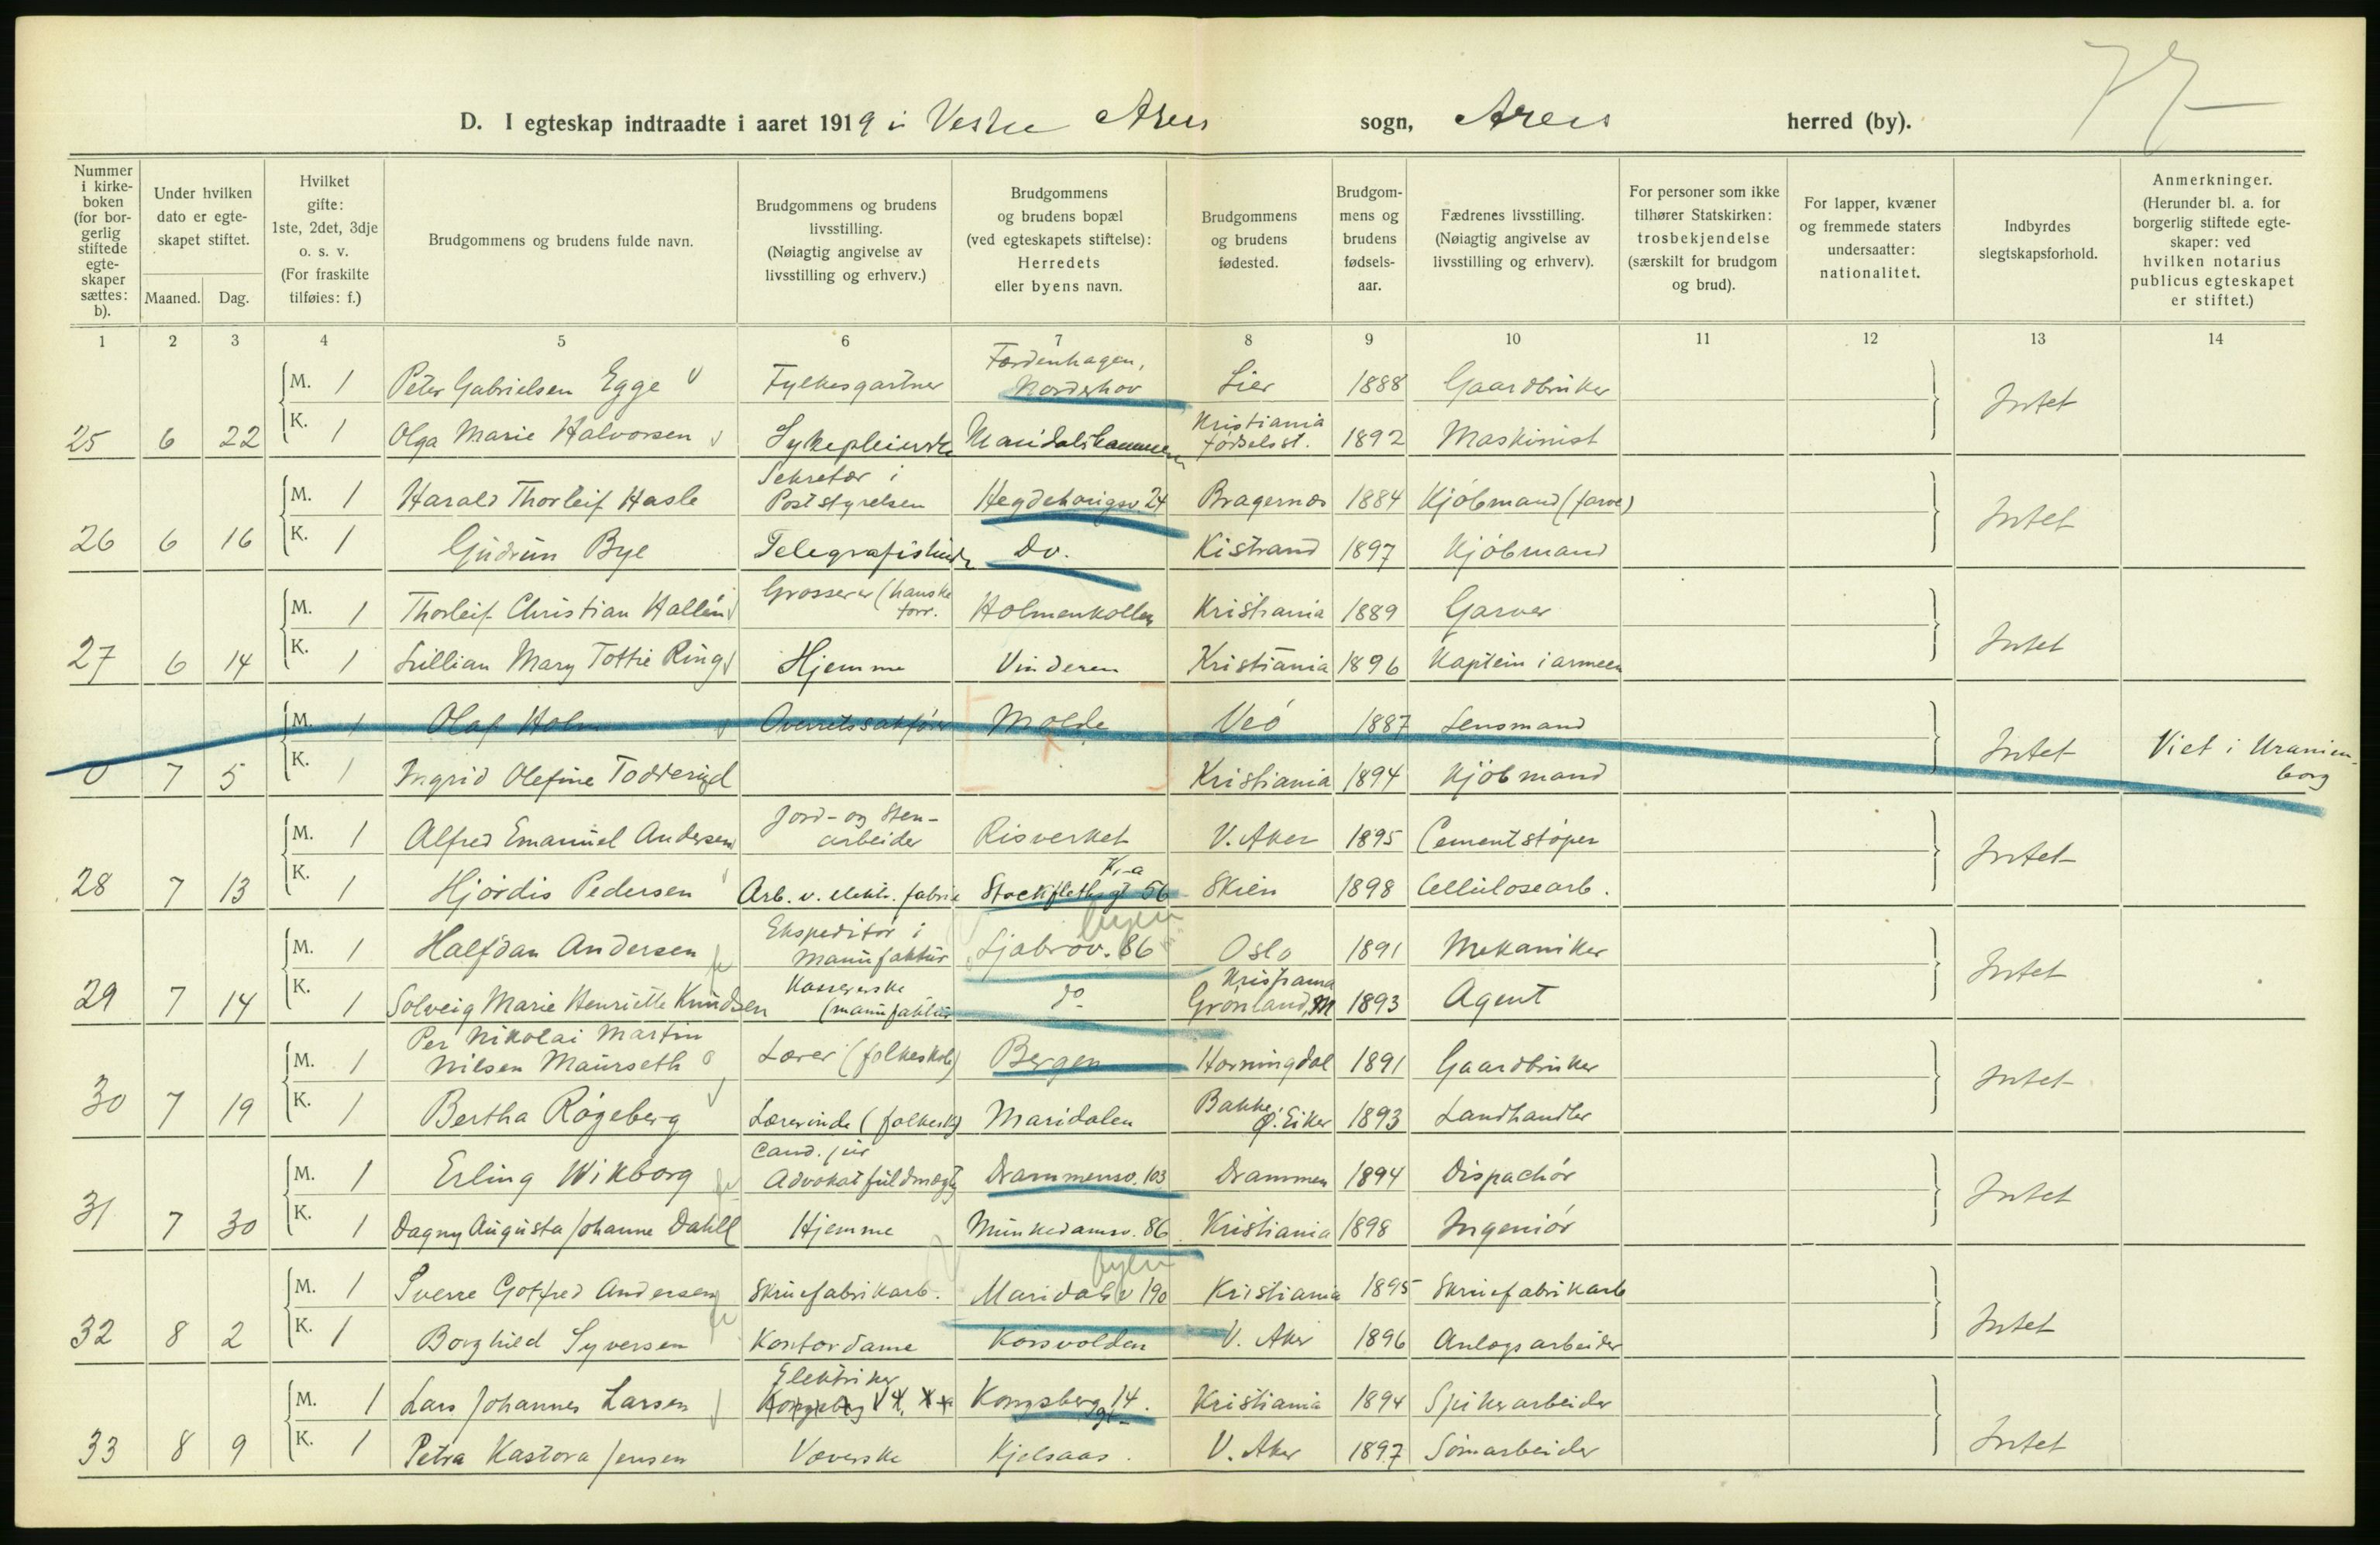 77
D. I egteskap indtraadte i aaret 1919 i Vestre Akers sogn, Akers herred (by).
Nummer i kirkeboken (for borgerlig stiftede egteskaper sættes: b).
Under hvilken dato er egteskapet stiftet.
Maaned. Dag.
Hvilket gifte: 1ste, 2det, 3dje o. s. v. (For fraskilte tilføies: f.)
Brudgommens og brudens fulde navn.
Brudgommens og brudens livsstilling. (Nøiagtig angivelse av livsstilling og erhverv.)
Brudgommens og brudens bopæl (ved egteskapets stiftelse): Herredets eller byens navn.
Brudgommens og brudens fødested.
Brudgommens og brudens fødselsaar.
Fædrenes livsstilling. (Nøiagtig angivelse av livsstilling og erhverv).
For personer som ikke tilhører Statskirken: trosbekjendelse (særskilt for brudgom og brud).
For lapper, kvæner og fremmede staters undersaatter: nationalitet.
Indbyrdes slegtskapsforhold.
Anmerkninger. (Herunder bl. a. for borgerlig stiftede egteskaper: ved hvilken notarius publicus egteskapet er stiftet.)
1 2 3 4 5 6 7 8 9 10 11 12 13 14
M. 1 Peter Gabrielsen Egge Fylkesgartner Nordrehov Lier 1888 Gaardbruker Intet
25 6 22 K. 1 Olga Marie Halvorsen Sykepleierske Maridalshammeren Kristiania Fødselsst. 1892 Maskinist
M. 1 Harald Thorleif Hasle Sekretær i Poststyrelsen Hegdehaugsv. 24 Bragernæs 1884 Kjøbmand (farve) Intet
26 6 16 K. 1 Gudrun Bye Telegrafistinde Do. Kistrand 1897 Kjøbmand
M. 1 Thorleif Christian Hallén Grosserer (hanske forr. Holmenkollen Kristiania 1889 Garver Intet
27 6 14 K. 1 Lillian Mary Tottie Ring Hjemme Vinderen Kristiania 1896 Kaptein i armeen
M. 1 Olaf Holm Overretssakfører Molde Veø 1887 Lensmand Intet Viet i Uranienborg
0 7 5 K. 1 Ingrid Olefine Kristiania 1894 Kjøbmand
M. 1 Alfred Emanuel Andersen Jord- og Stenarbeider Risverket V. Aker 1895 Cementstøper Intet
28 7 13 K. 1 Hjørdis Pedersen Arb. v. elektr. fabrik Stockflethsgt 56 Kr.a Skien 1898 Cellulosearb.
M. 1 Halfdan Andersen Ekspeditør i Manufaktur Ljabrov. 86 byen Oslo 1891 Mekaniker Intet
29 7 14 K. 1 Solveig Marie Henriette Knudsen Kassererske (manufaktur do Kristiania Grønland, M 1893 Agent
M. 1 Per Nikolai Martin Nilsen Maurseth Lærer (folkeskole) Bergen Horningdal 1891 Gaardbruker Intet
30 7 19 K. 1 Bertha Røgeberg Lærerinde (folkesk) Maridalen Bakke Ø. Eiker 1893 Landhandler
M. 1 Erling Wikborg Cand. jur Advokatfuldmægtig Drammensv. 103 Drammen 1894 Dispachør Intet
31 7 30 K. 1 Dagny Augusta Johanne Dahll Hjemme Munkedamsv. 86 Kristiania 1898 Ingeniør
M. 1 Sverre Gotfred Andersen Skruefabrikarb. Maridalsv 190 byen Kristiania 1895 Skruefabrikarb Intet
32 8 2 K. 1 Borghild Syversen Kontordame Korsvolden V. Aker 1896 Anlægsarbeider
M. 1 Lars Johannes Larsen Elektriker Kongsberggt 14. Kristiania 1894 Spikerarbeider Intet
33 8 9 K. 1 Petra Kastora Jensen Væverske Kjelsaas. V. Aker 1897 Sömarbeider